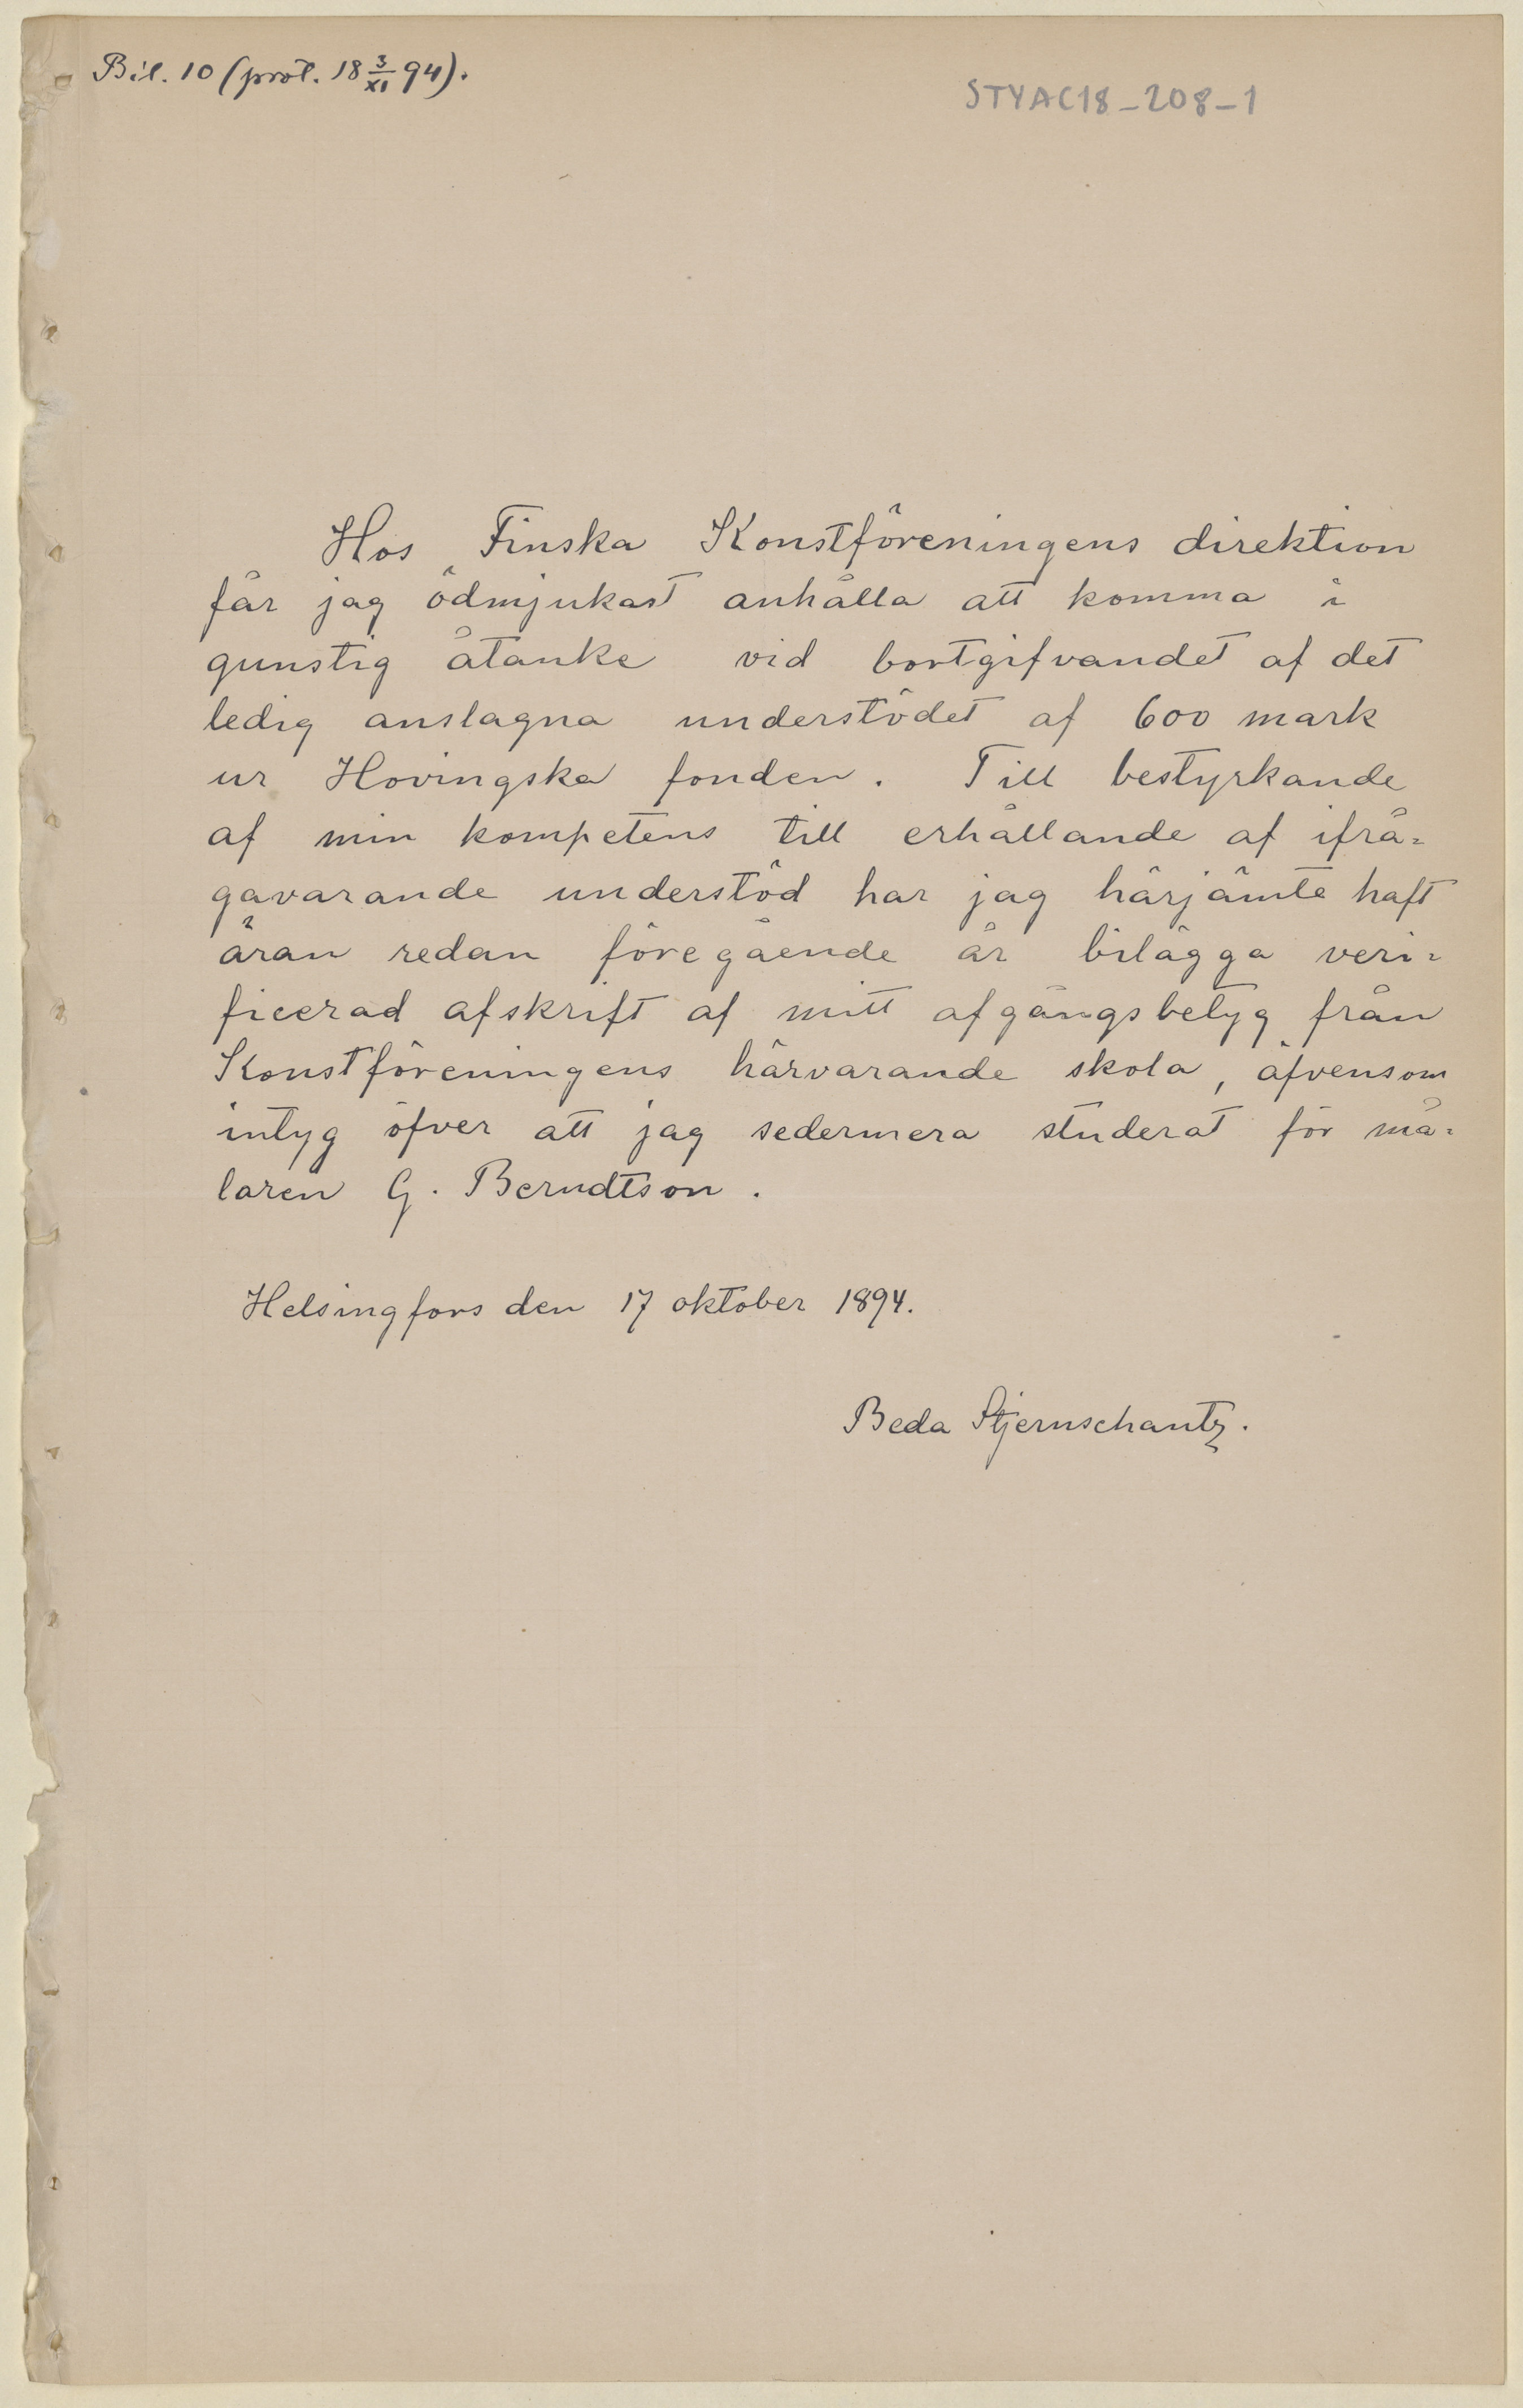 Bil. 10 (prot. 18 3/XI 94).
STYAC18_208_1
Hos Finska Konstföreningens direktion
får jag ödmjukast anhålla att komma i
gunstig åtanke vid bortgifvandet af det
ledig anslagna understödet af 600 mark
ur Hovingska fonden. Till bestyrkande
af min kompetens till erhållande af ifrå=
gavarande understöd har jag härjämte haft
äran redan föregående år bilägga veri=
ficerad afskrift af mitt afgångsbetyg från
Konstföreningens härvarande skola, äfvensom
intyg öfver att jag sedermera studerat för må=
laren G. Berndtson.
Helsingfors den 17 oktober 1894.
Beda Stjernschantz.